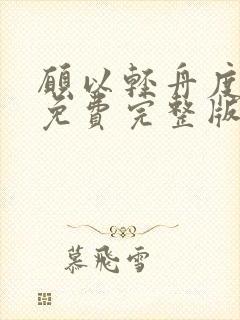 願以輕舟度
免費完整版
慕飛雪